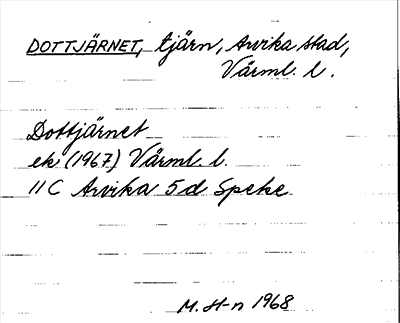 DOTTJÄRNET, tjärn, Arvika stad,
Värml. l.
Dottjärnet
ek (1967) Värml. l.
11 C Arvika 5d Speke
M. H-n 1968